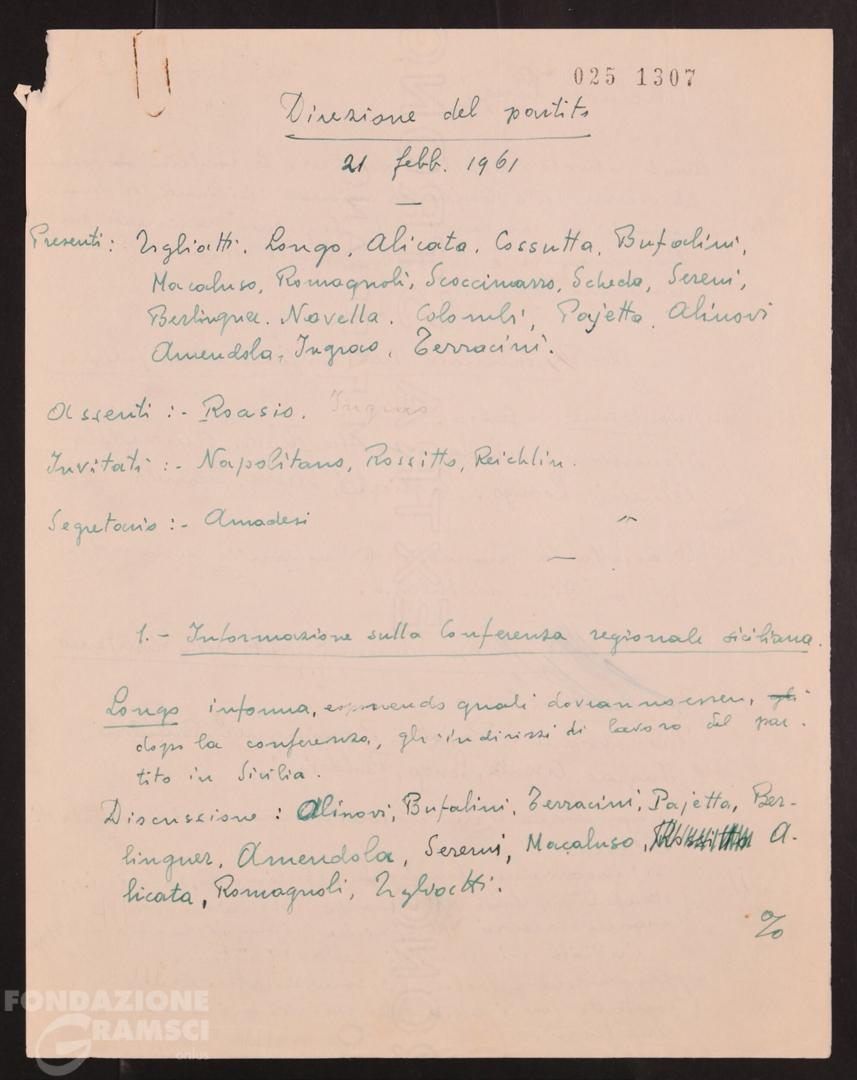 025 1307
Direzione del partito
21 febb. 1961
Presenti: Togliatti. Longo, Alicata. Cossutta, Bufalini,
Macaluso, Romagnoli, Scoccimarro, Scheda, Sereni,
Berlinguer. Novella. Colombi, Pajetta, Alinovi
Amendola, Ingrao, Terracini.
Assenti :- Roasio. Ingrao
Invitati :- Napolitano, Rossitto, Reichlin.
Segretario :- Amadesi
1.- Informazione sulla Conferenza regionale siciliana.
Longo informa, esponendo quali dovranno essere, gli
dopo la conferenza, gli indirizzi di lavoro del par-
tito in Sicilia.
Discussione : Alinovi, Bufalini, Terracini, Pajetta, Ber-
linguer, Amendola, Sereni, Macaluso, Rossitto A-
licata, Romagnoli, Togliatti.
%
FONDAZIONE
GRAMSCI
onlus